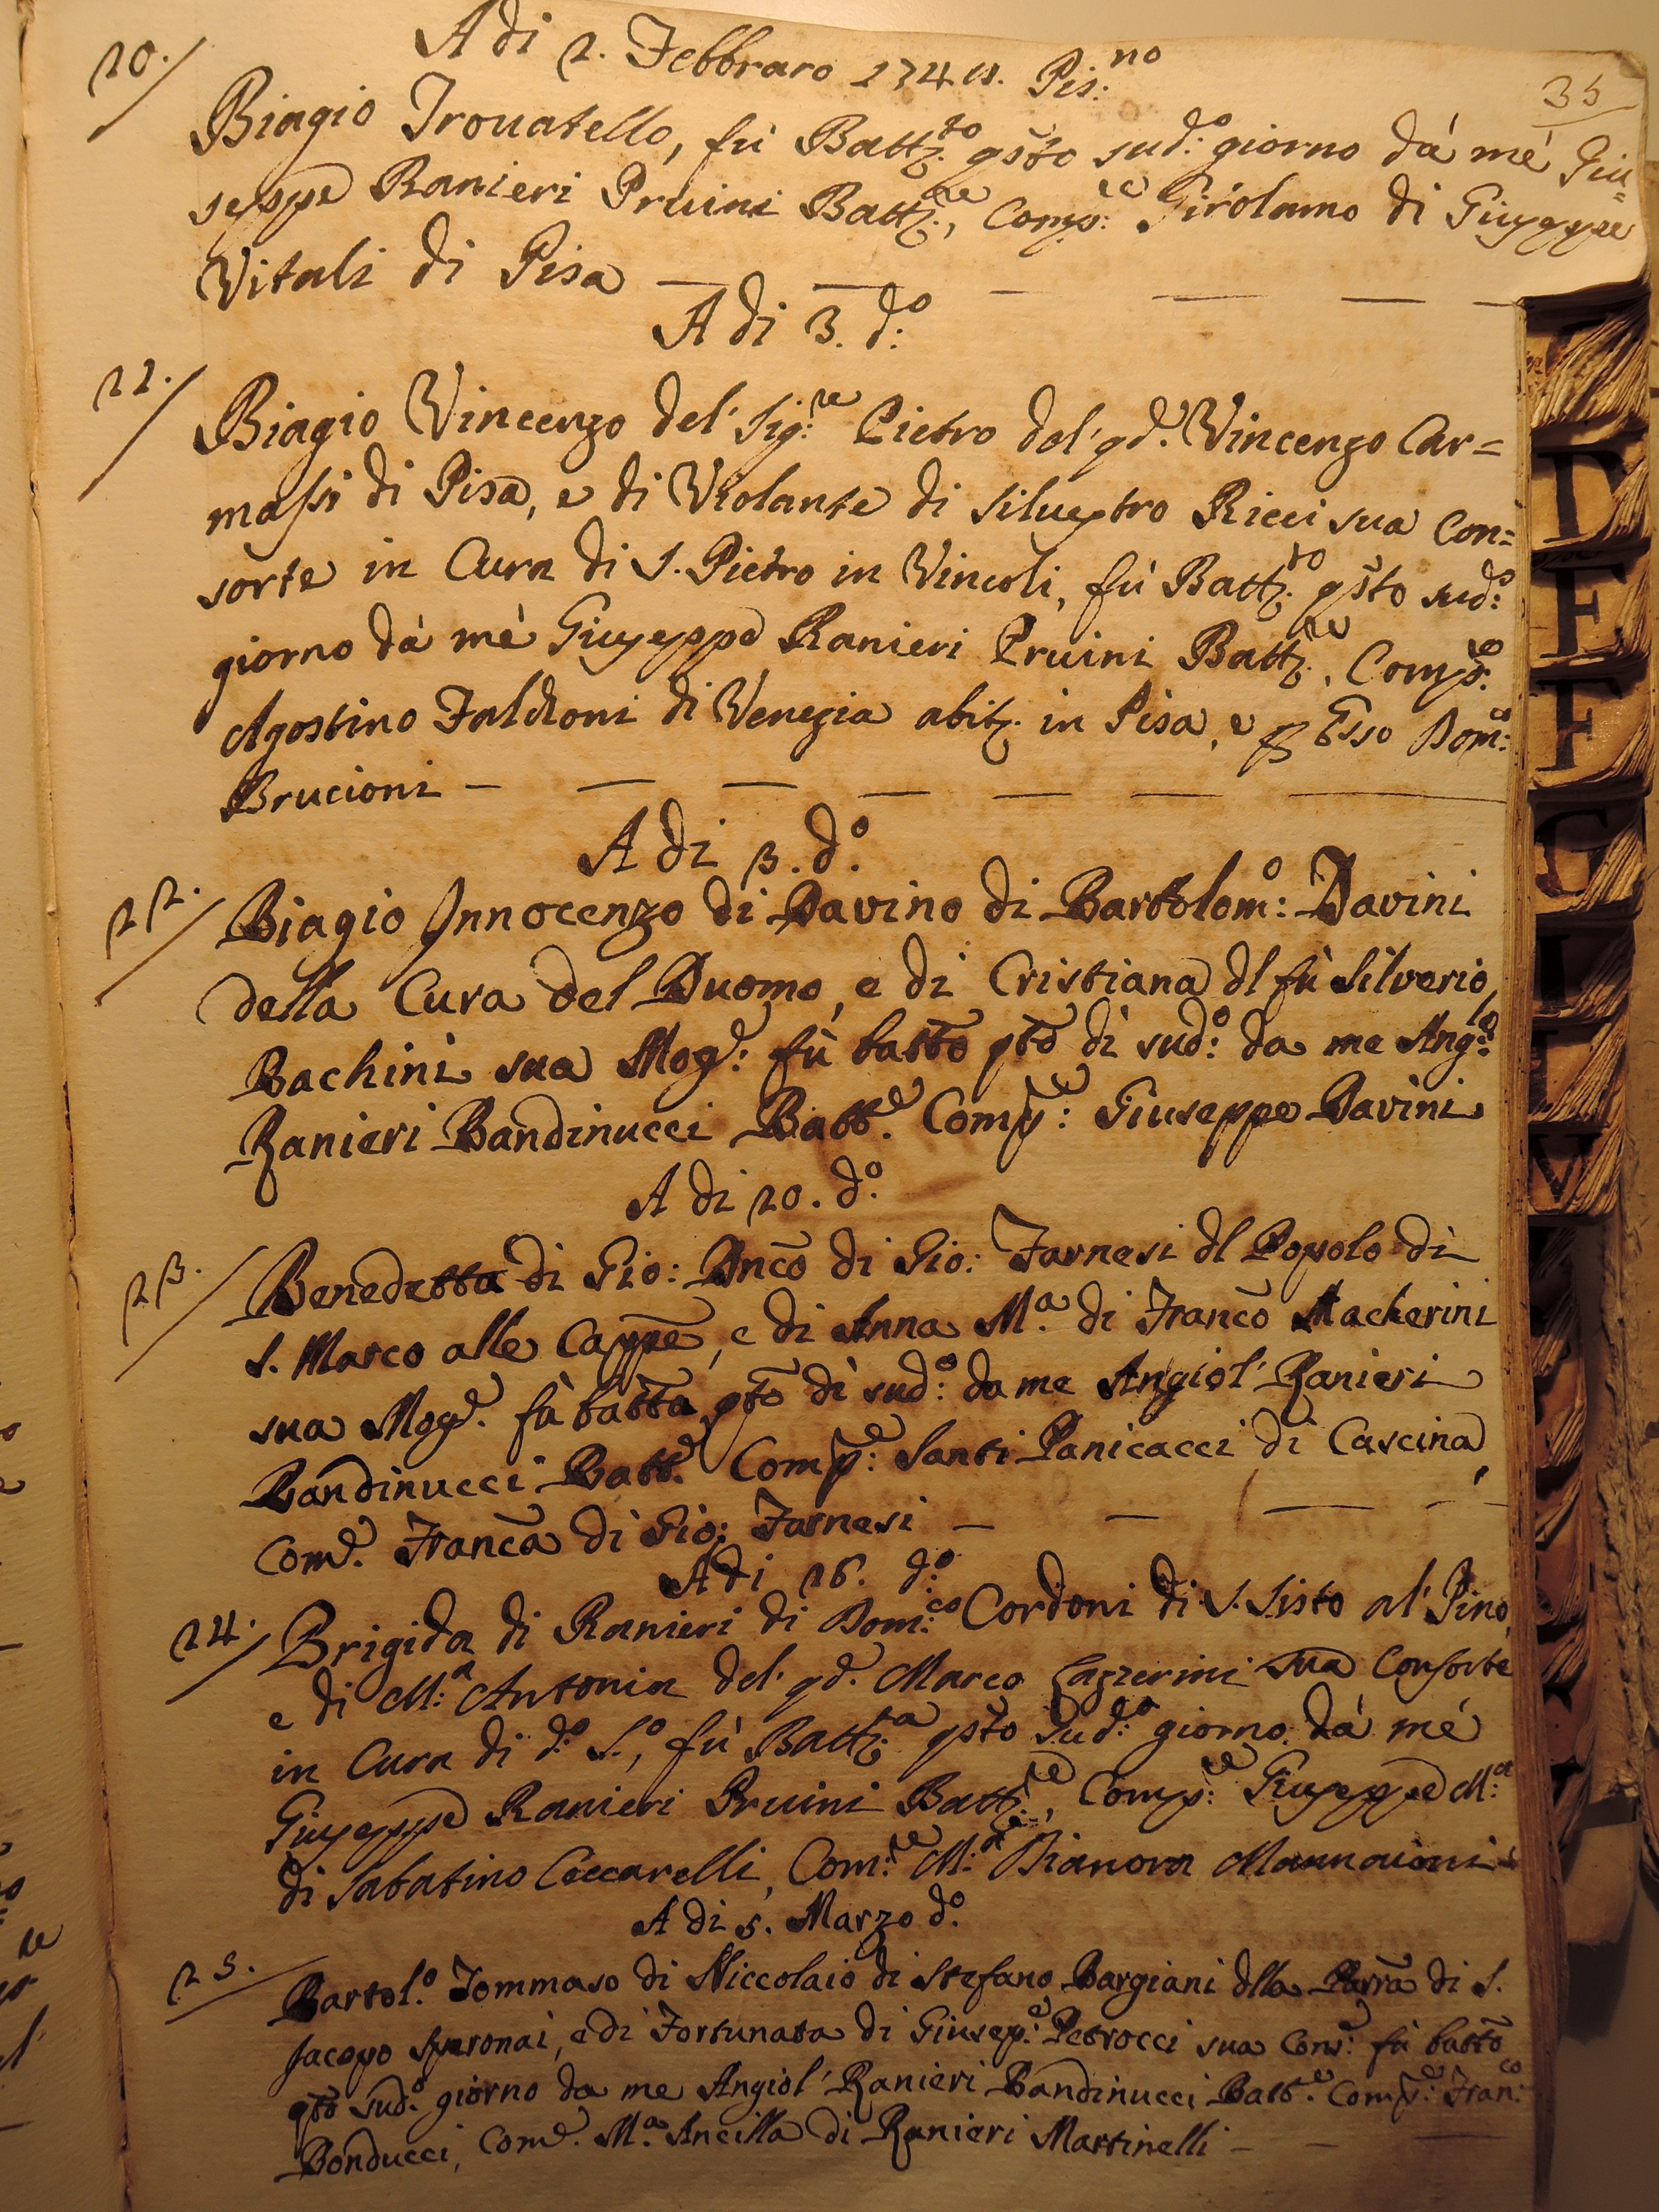 A di 2. Febbraro 174 Pis:no
35
20.
Biagio Trouatello, fù Battz:to qsto sud:o giorno dà mè Giu=
seppe Ranieri Pruini Battz:re, Comp:re Girolamo di Giuseppe
Vitali di Pisa
A di 3. d:o
21.
Biagio Vincenzo del' Sig:re Pietro del' qd. Vincenzo Car=
massi di Pisa, e di Violante di Siluestro Ricci sua Con=
sorte in Cura di S. Pietro in Vincoli, fù Battz:to qsto sud:o
giorno dà mè Giuseppe Ranieri Pruini Battz:re, Comp:re
Agostino Faldoni di Venezia abitz. in Pisa, e p Esso Dom:co
Brucioni
A di 3. d:o
22.
Biagio Innocenzo di Davino di Bartolom:o Davini
della Cura del Duomo, e di Cristiana dl fù Silverio
Bachini sua Moge: fù batto qto dì sud:o da me Ang:o
Ranieri Bandinucci Batt:e Comp:e Giuseppe Davini
A di 10. d:o
23.
Benedetta di Gio: Dnco di Gio: Farnesi dl Popolo di
S. Marco alle Cappe, e di Anna M:a di Franco Macherini
sua Moge. fù batta qto dì sud:o da me Angiol' Ranieri
Bandinucci Batt:e Comp:e Santi Panicacci di Cascina,
Come. Franca di Gio: Farnesi
A di 26. d:o
24.
Brigida di Ranieri di Dom:co Cordoni di S. Sisto al' Pino,
e di M:a Antonia del' qd. Marco Lazzerini sua Consorte
in Cura di d:o S:o, fù Battz:a qsto sud:o giorno dà mè
Giuseppe Ranieri Pruini Battz:re, Comp:re Giuseppe M:a
di Sabatino Ceccarelli, Com:re M:a Dianora Mannaioni
A di 5. Marzo d:o
25.
Bartol:o Tommaso di Niccolaio di Stefano Bargiani dlla Parra di S.
Jacopo Speronai, e di Fortunata di Giusep:e Petrocci sua Cons:e fù batto
qto sud:o giorno da me Angiol' Ranieri Bandinucci Batt:e Comp:e Fran:co
Bonducci, Come. M:a Ancilla di Ranieri Martinelli